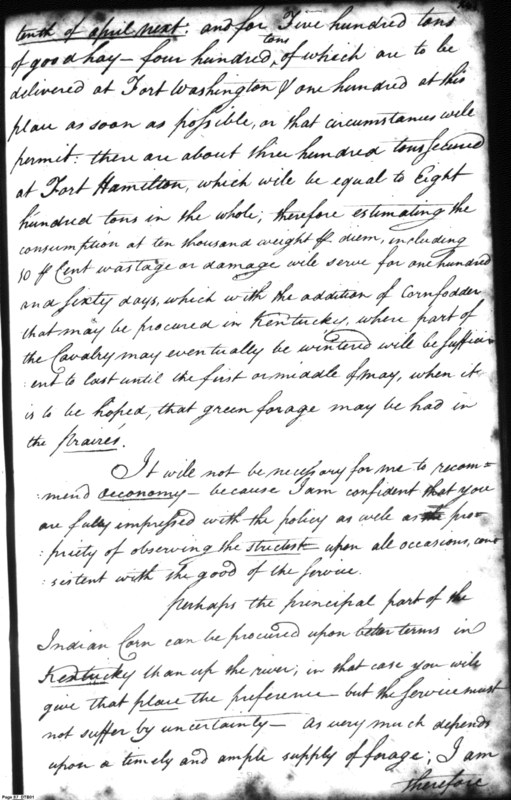 tenth of april next: and for Five hundred tons
of good hay — four hundred tons, of which are to be
delivered at Fort Washington & one hundred at this
place as soon as possible, or that circumstances will
permit: there are about three hundred tons secured
at Fort Hamilton, which will be equal to Eight
hundred tons in the whole; therefore estimating the
consumption at ten thousand weight ⅌ diem, including
50 ⅌ Cent wastage or damage will serve for one hundred
and sixty days, which with the addition of Cornfodder
that may be procured in Kentuckey, where part of
the Cavalry may eventually be wintered will be suffici
:ent to last until the first or middle of May, when it
is to be hoped, that green forage may be had in
the Praires.
It will not be necessary for me to recom=
:mend oeconomy — because I am confident that you
are fully impressed with the policy as well as pro=
:priety of observing the strictest upon all occasions, con=
:sistent with the good of the Service.
Perhaps the principal part of the
Indian Corn can be procured upon better terms in
Kentucky than up the river; in that case you will
give that place the preference — but the Service must
not suffer by uncertainty — as very much depends
upon a timely and ample supply of forage; I am
therefore
Page 87 DTB01